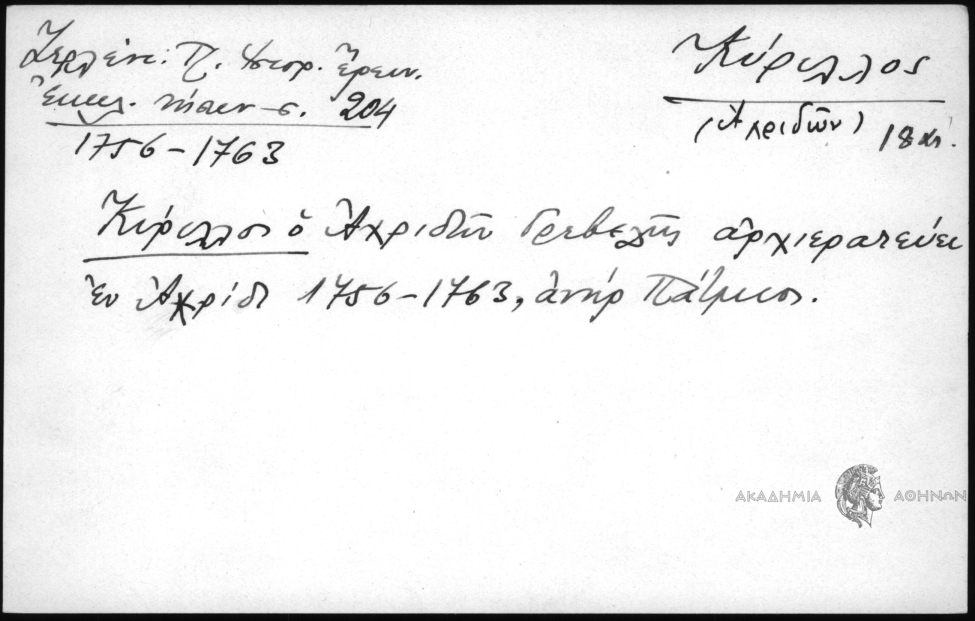 Ζερλέντ. Π. Ἱστορ. Ἔρευν.
Ἐκκλ. νήσων σ. 204
1756-1763
Κύριλλος
(Ἀχριδῶν) 18 αἰ.
Κύριλλος ὁ Ἀχριδῶν Γρεβελῆς ἀρχιερατεύει
ἐν Ἀχρίδι 1756-1763, ἀνήρ Πάτμιος.
ΑΚΑΔΗΜΙΑ ΑΘΗΝΩΝ